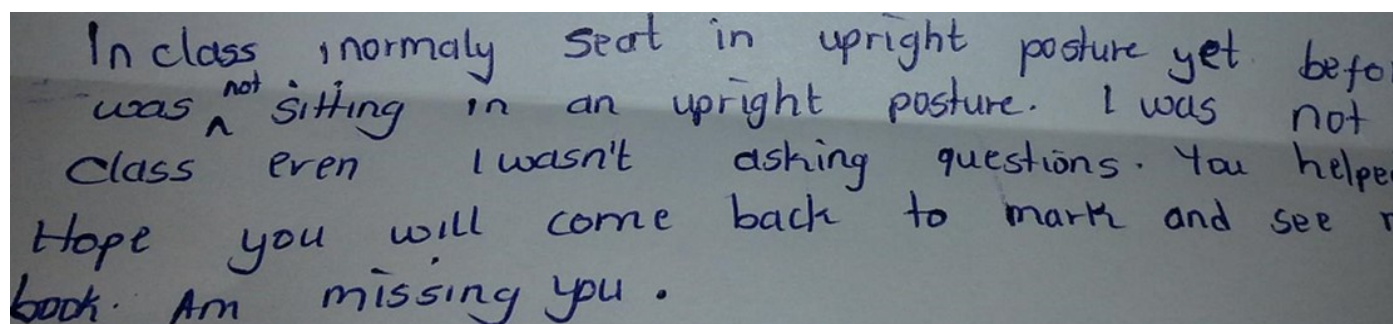 In class i normaly seat in upright posture yet befo
was not sitting in an upright posture. I was not
class even I wasn't asking questions. You helpe
Hope you will come back to mark and see
book. Am missing you.